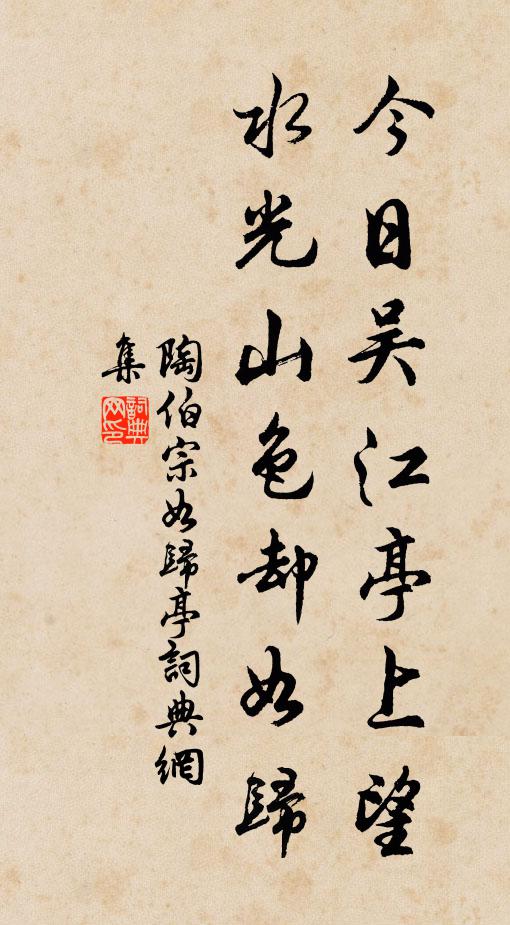 今日吴江亭上望
水光山色却如歸
陶伯宗如歸亭詞典網
集
詞典網印